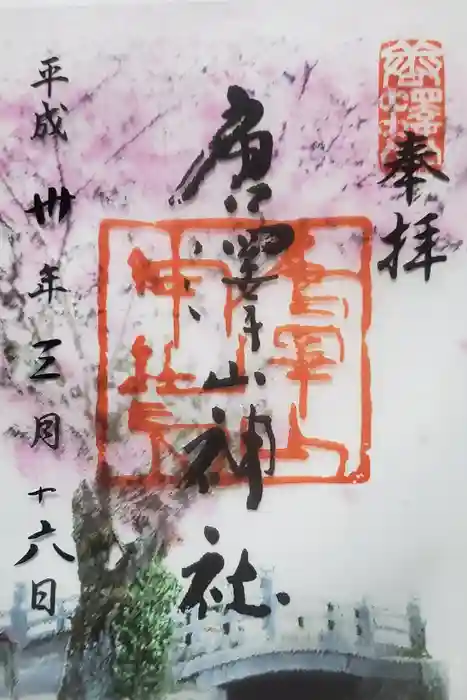 奉拝
唐澤山神社
唐澤山
神社
平成卅年三月十六日